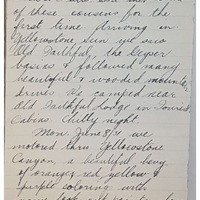 of these cousins for the
first time driving in
Yellowstone Sun. we view
Old Faithful, the Geyser
basins & followed many
beautiful & wooded mountain
drives. We camped near
Old Faithful Lodge in Tourist
Cabins. Chilly night.
Mon. June 8/31 we
motored thru Yellowstone
Canyon, a beautiful
of orange, red, yellow &
purple coloring with